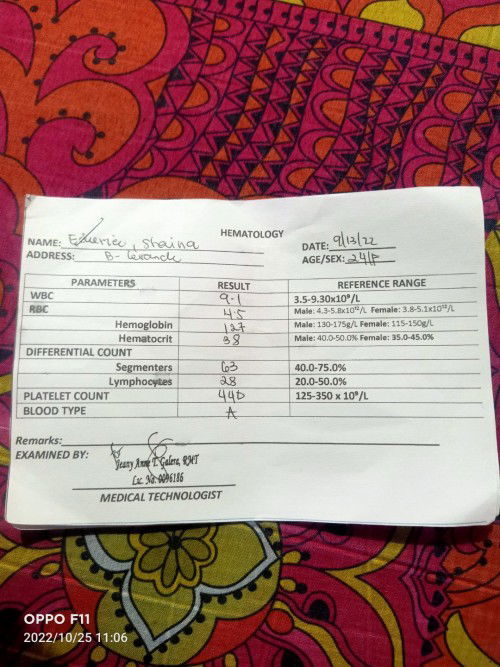 HEMATOLOGY
NAME: Shaina DATE: 9/13/22
ADDRESS: B- AGE/SEX: 24/F
PARAMETERS RESULT REFERENCE RANGE
WBC 9.1 3.5-9.30x10⁹/L
RBC 4.5 Male: 4.3-5.8x10¹²/L Female: 3.8-5.1x10¹²/L
Hemoglobin 127 Male: 130-175g/L Female: 115-150g/L
Hematocrit 38 Male: 40.0-50.0% Female: 35.0-45.0%
DIFFERENTIAL COUNT
Segmenters 63 40.0-75.0%
Lymphocytes 28 20.0-50.0%
PLATELET COUNT 440 125-350 x 10⁹/L
BLOOD TYPE A
Remarks:
EXAMINED BY: Jeany Anne T. Galere, RMT
Lic. No. 0096186
MEDICAL TECHNOLOGIST
OPPO F11
2022/10/25 11:06